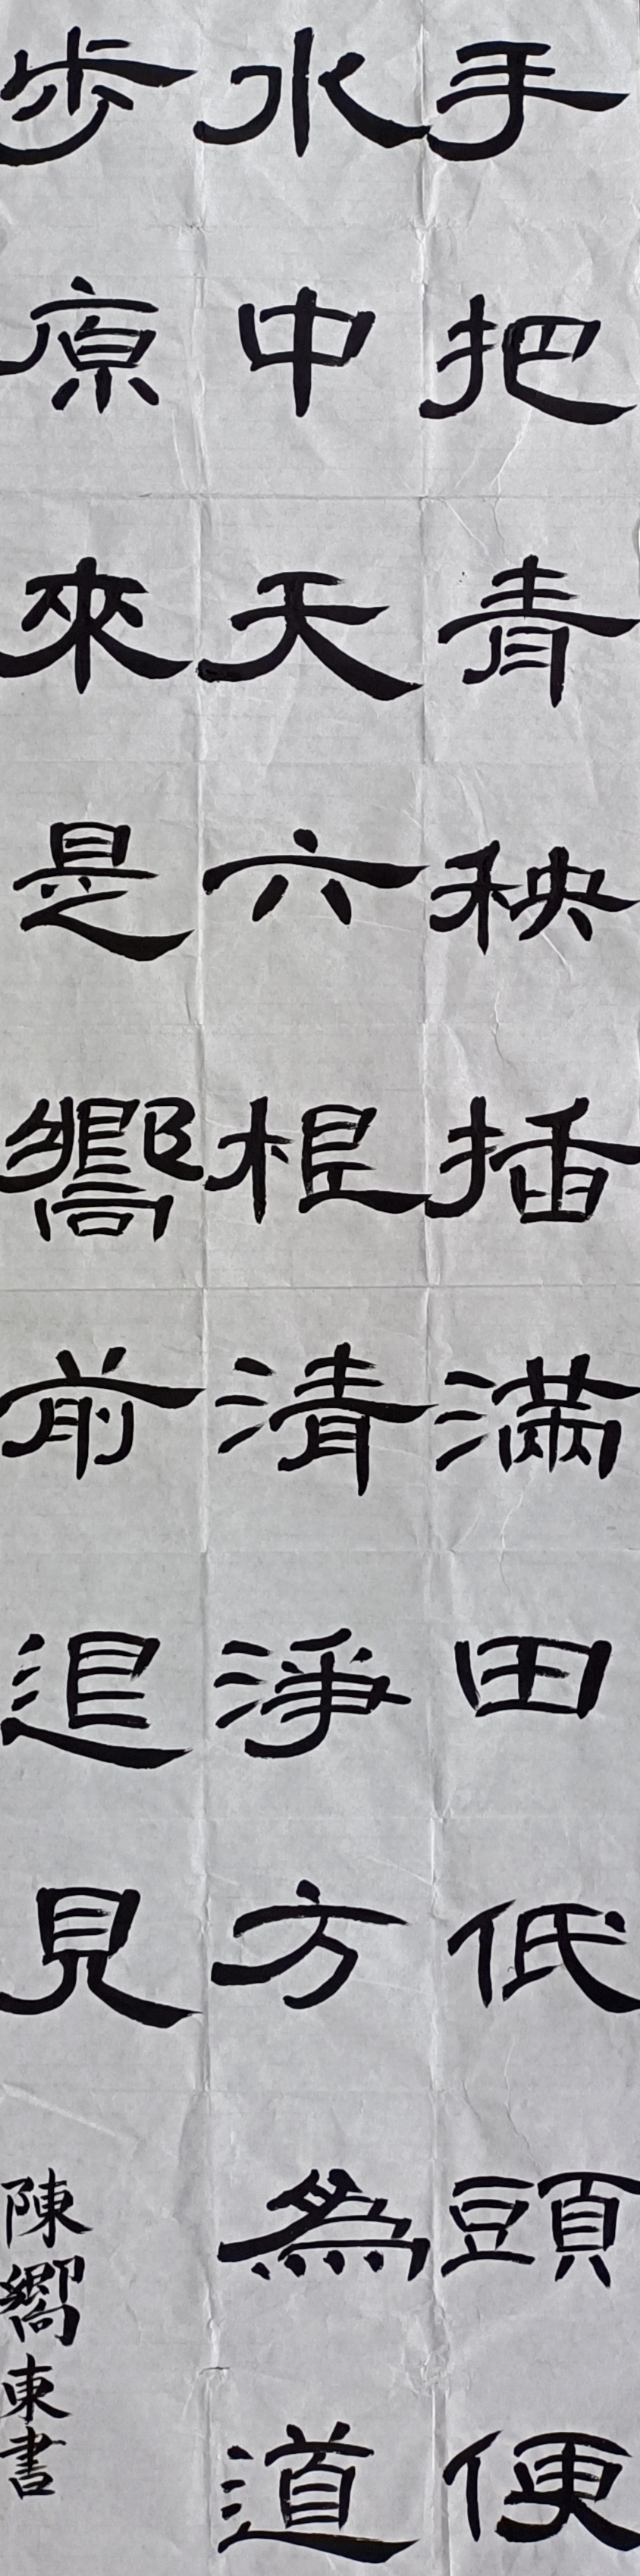 手把青秧插滿田低頭便
水中天六根清淨方為道
步原來是嚮前退見
陳嚮東書